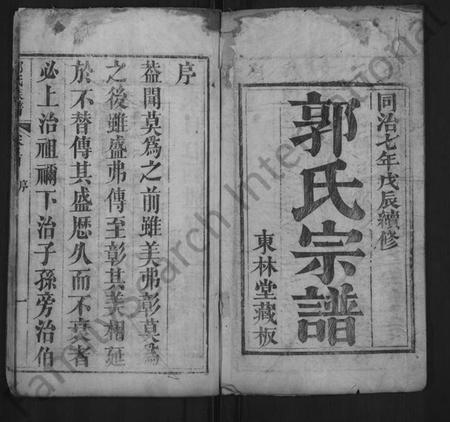 同治七年戊辰續修
郭氏宗譜
東林堂藏板
序
蓋聞莫為之前雖美弗彰莫為
之後雖盛弗傳至彰其美相延
於不替傳其盛歷久而不衰者
必上治祖禰下治子孫旁治伯
序
一